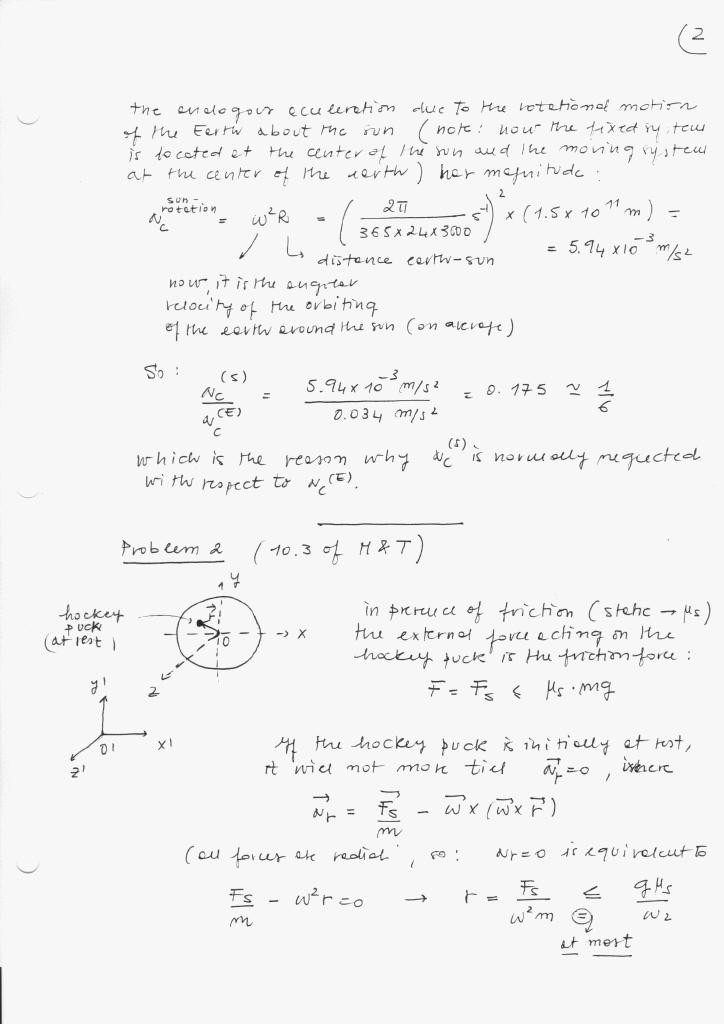 (2
the analogous acceleration due to the rotational motion
of the Earth about the sun (note: now the fixed system
is located at the center of the sun and the moving system
at the center of the earth) has magnitude:
a_c^{sun-rotation} = ω²R = (2π / 365×24×3600 s⁻¹)² × (1.5 × 10¹¹ m) =
distance earth-sun = 5.94 × 10⁻³ m/s²
now, it is the angular
velocity of the orbiting
of the earth around the sun (on average)
So: a_c^(S) / a_c^(E) = 5.94 × 10⁻³ m/s² / 0.034 m/s² = 0.175 ≃ 1/6
which is the reason why a_c^(S) is normally neglected
with respect to a_c^(E).
Problem 2 (10.3 of M&T)
y
hockey puck (at rest)
r⃗
O
x
z
y'
O'
x'
z'
in presence of friction (static → μs)
the external force acting on the
hockey puck is the friction force:
F = Fs ≤ μs·mg
If the hockey puck is initially at rest,
it will not move till a⃗r = 0, where
a⃗r = F⃗s/m - ω⃗ × (ω⃗ × r⃗)
(all forces are radial, so: ar = 0 is equivalent to
Fs/m - ω²r = 0 → r = Fs/ω²m ≤ gμs/ω2
(=)
at most